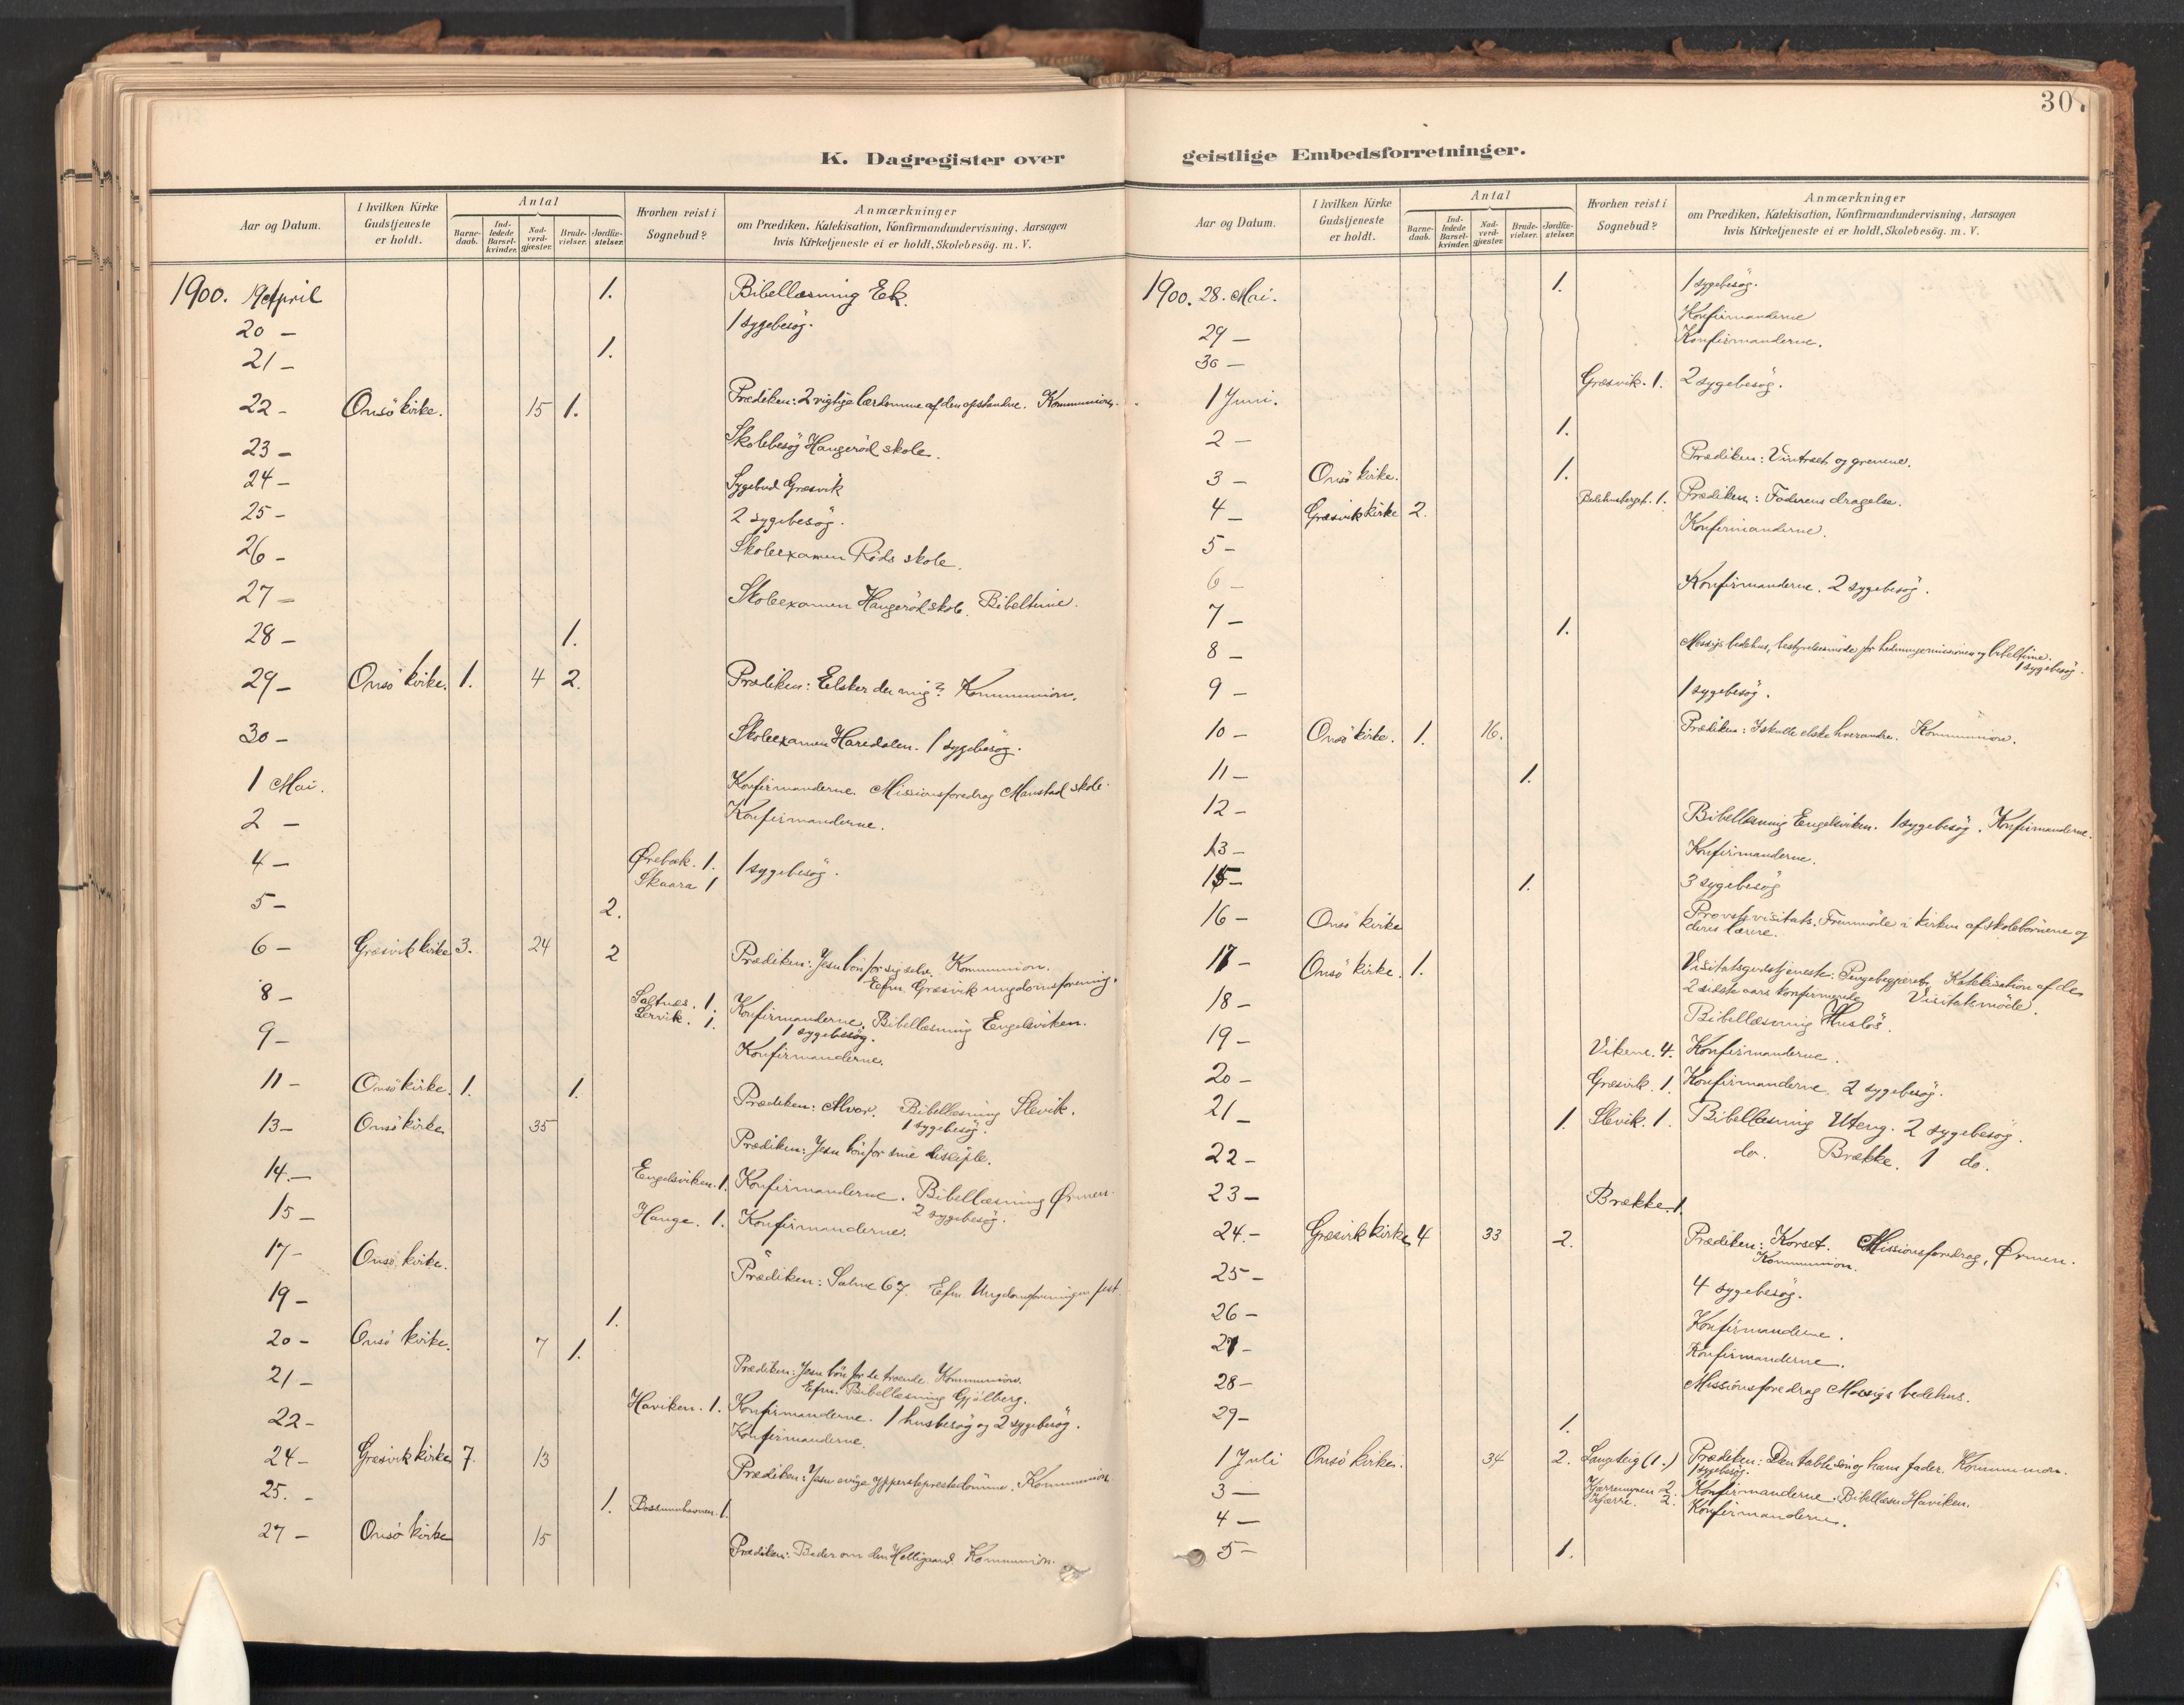 K. Dagregister over
Aar og Datum.
I hvilken Kirke Gudstjeneste er holdt.
Antal
Barne-daab.
Ind-ledede Barsel-kvinder.
Nad-verd-gjester.
Brude-vielser.
Jordfæ-stelser.
Hvorhen reist i Sognebud?
Anmærkninger
om Prædiken, Katekisation, Konfirmandundervisning, Aarsagen
hvis Kirketjeneste ei er holdt, Skolebesög. m. V.
1900. 19 April 1. Bibellæsning Ek.
20 – 1 sygebesøg.
21 – 1.
22 – Onsö kirke. 15 1. Prædiken: 2 vigtige lærdomme af den opstandne. Kommunion.
23 – Skolebesøg Haugeröd skole.
24 – Sygebud Græsvik
25 – 2 sygebesøg.
26 – Skoleexamen Röds skole.
27 – Skoleexamen Haugeröd skole. Bibeltime.
28 – 1.
29 – Onsö kirke. 1. 4 2. Prædiken: Elsker du mig? Kommunion.
30 – Skoleexamen Haredalen. 1 sygebesøg.
1 Mai. Konfirmanderne. Missionsforedrag Manstad skole.
2 – Konfirmanderne.
4 – Ørebæk. 1. 1 sygebesøg.
Skaara 1
5 – 2.
6 – Græsvik kirke 3. 24 2 Prædiken: Jesu bön for sig selv. Kommunion.
Efm. Græsvik ungdomsforening.
8 – Saltnæs. 1. Konfirmanderne. Bibellæsning Engelsviken.
Lervik. 1. 1 sygebesøg.
9 – Konfirmanderne.
11 – Onsö kirke. 1. 1. Prædiken: Alvor. Bibellæsning Slevik.
1 sygebesøg.
13 – Onsö kirke 35 Prædiken: Jesu bön for sine disciple.
14. – Engelsviken. 1. Konfirmanderne. Bibellæsning Ørmen.
2 sygebesøg.
15 – Hauge. 1. Konfirmanderne.
17 – Onsö kirke. Prædiken: Salme 67. Efm. Ungdomsforeningen fest.
19 – 1.
20 – Onsö kirke. 7 1. Prædiken: Jesu bön for de troende. Kommunion.
Efm. Bibellæsning Gjölberg.
21 – Haviken. 1. Konfirmanderne. 1 husbesøg og 2 sygebesøg.
22 – Konfirmanderne.
24 – Græsvik kirke 7. 13 Prædiken: Jesu evige ypperstepræstedömme. Kommunion
25. – 1. 1.
27 – Onsö kirke 15 Prædiken: Beder om den Helligaand. Kommunion.
307
geistlige Embedsforretninger.
Aar og Datum.
I hvilken Kirke Gudstjeneste er holdt.
Antal
Barne-daab.
Ind-ledede Barsel-kvinder.
Nad-verd-gjester.
Brude-vielser.
Jordfæ-stelser.
Hvorhen reist i Sognebud?
Anmærkninger
om Prædiken, Katekisation, Konfirmandundervisning, Aarsagen
hvis Kirketjeneste ei er holdt, Skolebesög. m. V.
1900. 28. Mai. 1. 1 sygebesøg.
29 – Konfirmanderne
30 – Konfirmanderne.
1 Juni. Græsvik. 1. 2 sygebesøg.
2 – 1.
3 – Onsö kirke. 1. Prædiken: Vintræet og grenene.
4 – Græsvik kirke 2. 1. Prædiken: Faderens dragelse.
5 – Konfirmanderne.
6 – Konfirmanderne. 2 sygebesøg.
7 – 1.
8 – Mossigs bedehus, bestyrelsesmöde for hedningemissionen og bibeltime.
1 sygebesøg.
9 – 1 sygebesøg.
10 – Onsö kirke. 1. 16. Prædiken: I skulle elske hverandre. Kommunion.
11 – 1.
12 – Bibellæsning Engelsviken. 1 sygebesøg. Konfirmanderne.
13 – Konfirmanderne.
15 – 1. 3 sygebesøg
16 – Onsö kirke Provstevisitats. Fremmöde i kirken af skolebörnene og
deres lærere.
17 – Onsö kirke. 1. Visitatsgudstjeneste: Katekisation af de
2 sidste aars konfirmerede Visitatsmöde.
18 – Bibellæsning Huslös.
19 – Vikene. 4. Konfirmanderne.
20 – Græsvik. 1. Konfirmanderne. 2 sygebesøg.
21 – 1. Slevik. 1. Bibellæsning Uteng. 2 sygebesøg.
22 – do. Brække. 1 do.
23 – Brække. 1.
24. – Græsvik kirke 4 33 2. Prædiken: Korset. Missionsforedrag, Ørmen.
Kommunion.
25 – 4 sygebesøg.
26 – Konfirmanderne.
27 – Konfirmanderne.
28 – Missionsforedrag Mossigs bedehus.
29 – 1.
1 Juli Onsö kirke. 34 2. Langteig (1.) Prædiken: Den tabte sön og hans fader. Kommunion.
1 sygebesøg.
3 – Kjærremyren 2. Konfirmanderne. Bibellæsn Haviken.
4 – Kjærre. 2. Konfirmanderne.
5 – 1.